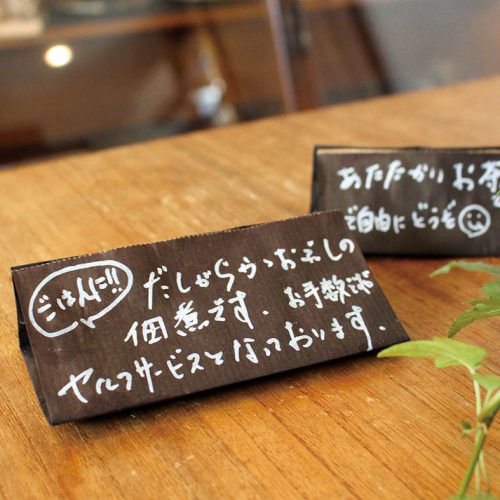 ごはんに!!
だしがらかつおぶしの
佃煮です. お手数ですが
セルフサービスとなっております.
あたたかいお茶も
ご自由にどうぞ